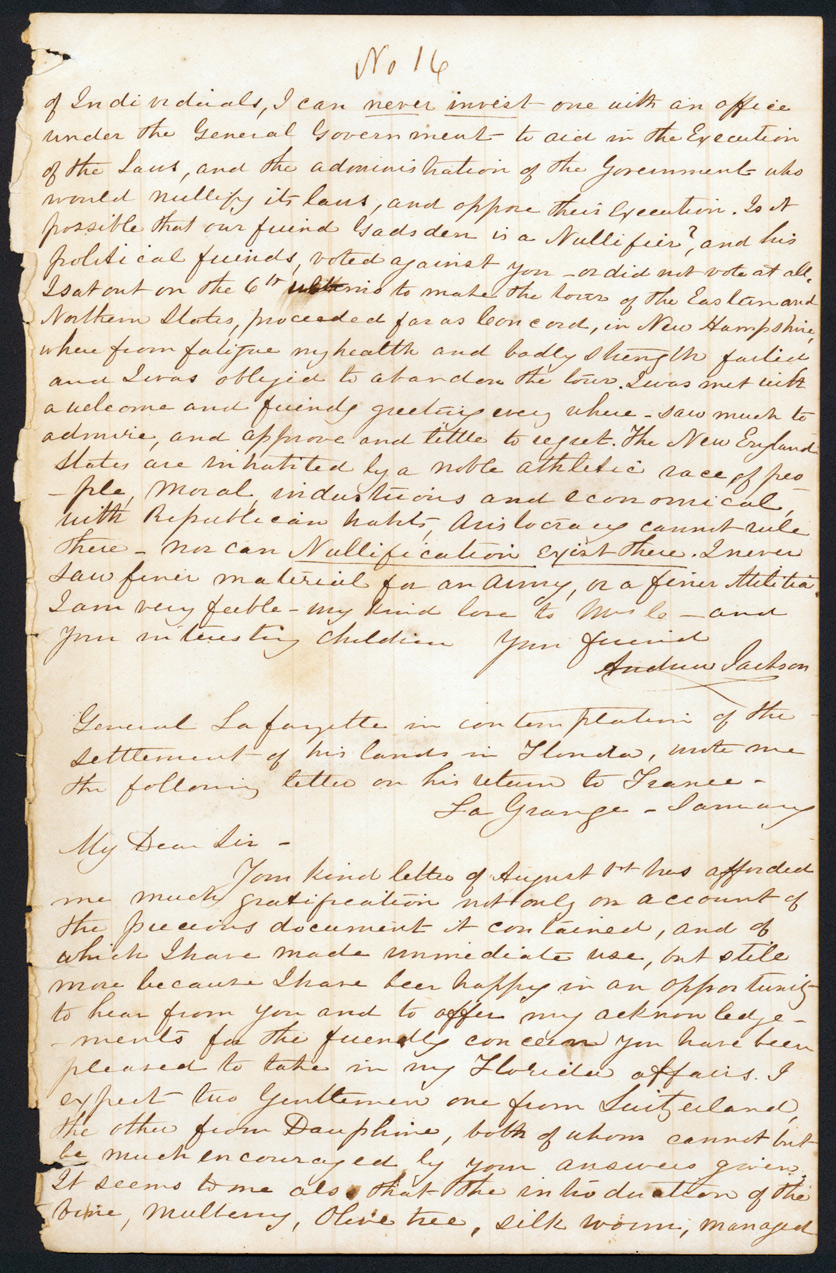 No 16
of Individuals, I can never invest one with an office
under the General Government to aid in the Execution
of the Laws, and the administration of the Government who
would nullify its laws, and oppose their Execution. Is it
possible that our friend Gadsden is a Nullifier?, and his
political friends, voted against you - or did not vote at all.
I sat out on the 6th to make the tour of the Eastern and
Northern States, proceeded far as Concord, in New Hampshire,
where from fatigue my health and badly strength failed
and I was obliged to abandon the tour. I was met with
a welcome and friendly greeting every where - saw much to
admire, and approve and little to regret. The New England
States are inhabited by a noble athletic race, of peo
- ple, moral, industrious and economical,
with Republican habits, Aristocracy cannot rule
there - nor can Nullification exist there. I never
saw finer material for an Army, or a finer Militia.
I am very feeble - my kind love to Mrs C - and
your interesting children your friend
Andrew Jackson
General Lafayette in contemplation of the
settlement of his lands in Florida, wrote me
the following letter on his return to France -
La Grange - January
My Dear Sir -
Your kind letter of August 1st has afforded
me much gratification not only on account of
the precious document it contained, and of
which I have made immediate use, but still
more because I have been happy in an opportunity
to hear from you and to offer my acknowledge-
- ments for the friendly concern you have been
pleased to take in my Florida affairs. I
expect two Gentlemen one from Switzerland,
the other from Dauphine, both of whom cannot but
be much encouraged by your answers given.
It seems to me also that the introduction of the
vine, Mulberry, Olive tree, silk worm, managed